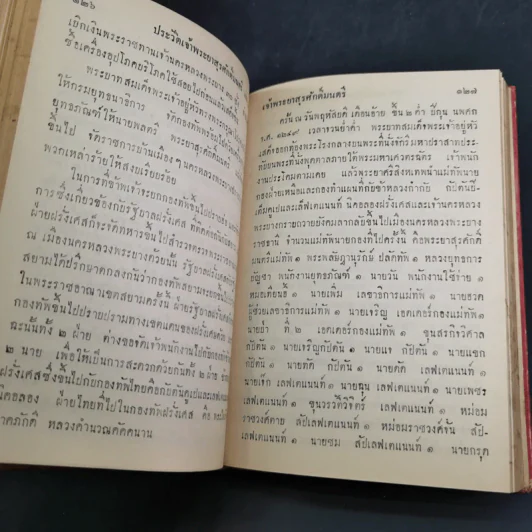 ๑๒๖
ประวัติเจ้าพระยาสุรศักดิ์มนตรี
เบิกเงินพระราชทานเจ้านครหลวงพระบาง
ซื้อเครื่องอุปโภคบริโภคใช้สอยไปก่อน
พระบาทสมเด็จพระเจ้าอยู่หัว
ให้กรมยุทธนาธิการ จัดกองทัพ
ยุทธภัณฑ์ให้นายพลตรี พระยาสุรศักดิ์มนตรี
ขึ้นไป จัดราชการบ้านเมือง ณ นครหลวงพระบาง
พวกเหล่าร้ายให้สงบเรียบร้อย
ในการที่ข้าพเจ้าจะยกกองทัพขึ้นไปปราบ
การ ซึ่งเกี่ยวข้องกับรัฐบาลฝรั่งเศส ที่
ฝ่ายฝรั่งเศสก็จะจัดทหารขึ้นไปสำรวจตรวจ
ณ เมืองนครหลวงพระบางด้วยนั้น รัฐบาลฝรั่งเศส
สยามได้ปรึกษาตกลงกันว่ากองทัพสยาม
ในพระราชอาณาเขตสยามครั้งนี้ ฝ่ายรัฐบาลฝรั่งเศส
กองทัพขึ้นไปปราบปรามทางเขตแดนของฝรั่งเศส
ฉะนั้นทั้ง ๒ ฝ่าย ต่างขอจัดเจ้าพนักงานไปกับกองทัพ
๒ นาย เพื่อให้เป็นการสะดวกด้วยกันทั้ง ๒ ฝ่าย
ฝรั่งเศสซึ่งขึ้นไปกับกองทัพไทยคือกัปตันคูเปต์และเลฟเตแนนท์
นิคอลอง ฝ่ายไทยที่ไปในกองทัพฝรั่งเศส คือ
ภาคภักดี หลวงคำนวณคัคคนาน
เจ้าพระยาสุรศักดิ์มนตรี
๑๒๗
ครั้น ณ วันพฤหัสบดี เดือนอ้าย ขึ้น ๒ ค่ำ ปีกุน นพศก
จ.ศ. ๑๒๔๙ เวลาจวนย่ำค่ำ พระบาทสมเด็จพระเจ้าอยู่หัว
เสด็จออกท้องพระโรงกลางบน
เทศพระที่นั่งพุดตาลภายใต้พระมหาเศวตฉัตร เจ้าพนัก
งานประโคมตามเคย แล้วพระยาศรีสิงหเทพนำแม่ทัพนาย
กองฝ่ายเหนือและกองทำแผนที่กับข้าหลวงกำกับ กัปตันปี-
เตมัคูเปต์และเลฟเตแนนท์ นิคอลองฝรั่งเศสและเจ้านครหลวง
พระบางกราบถวายบังคมลากลับขึ้นไปเมืองนครหลวงพระบาง
ราชธานี จำนวนแม่ทัพนายกองที่ไปครั้งนี้ คือพระยาสุรศักดิ์
มนตรีแม่ทัพ ๑ พระพลัษฎานุรักษ์ ปลัดทัพ ๑ หลวงยุทธการ
บัญชา พนักงานยุทธภัณฑ์ ๑ นายวัน พนักงานใช้จ่าย ๑
หมอเทียนฮี้ ๑ นายเพิ่ม เลขาธิการแม่ทัพ ๑ นายถวด
ผู้ช่วยเลขาธิการแม่ทัพ ๑ นายเจริญ เอดเดอร์กองแม่ทัพ ๑
นายย้า ที่ ๒ เอดเดอร์กองแม่ทัพ ๑ ขุนสรกิจวิศาล
กัปตัน ๑ นายเจริญกัปตัน ๑ นายแจ กัปตัน ๑ นายแขก
กัปตัน ๑ นายทัด กัปตัน ๑ นายดัด เลฟเตแนนท์ ๑
นายเจ๊ก เลฟเตแนนท์ ๑ นายอุ่ม เลฟเตแนนท์ ๑ นายเพชร
เลฟเตแนนท์ ๑ ขุนวรวัติวิจิตร์ เลฟเตแนนท์ ๑ หม่อม
ราชวงศ์คาย สัปเลฟเตแนนท์ ๑ หม่อมราชวงศ์ชื่น สัป-
เลฟเตแนนท์ ๑ นายชม สัปเลฟเตแนนท์ ๑ นายกรุด